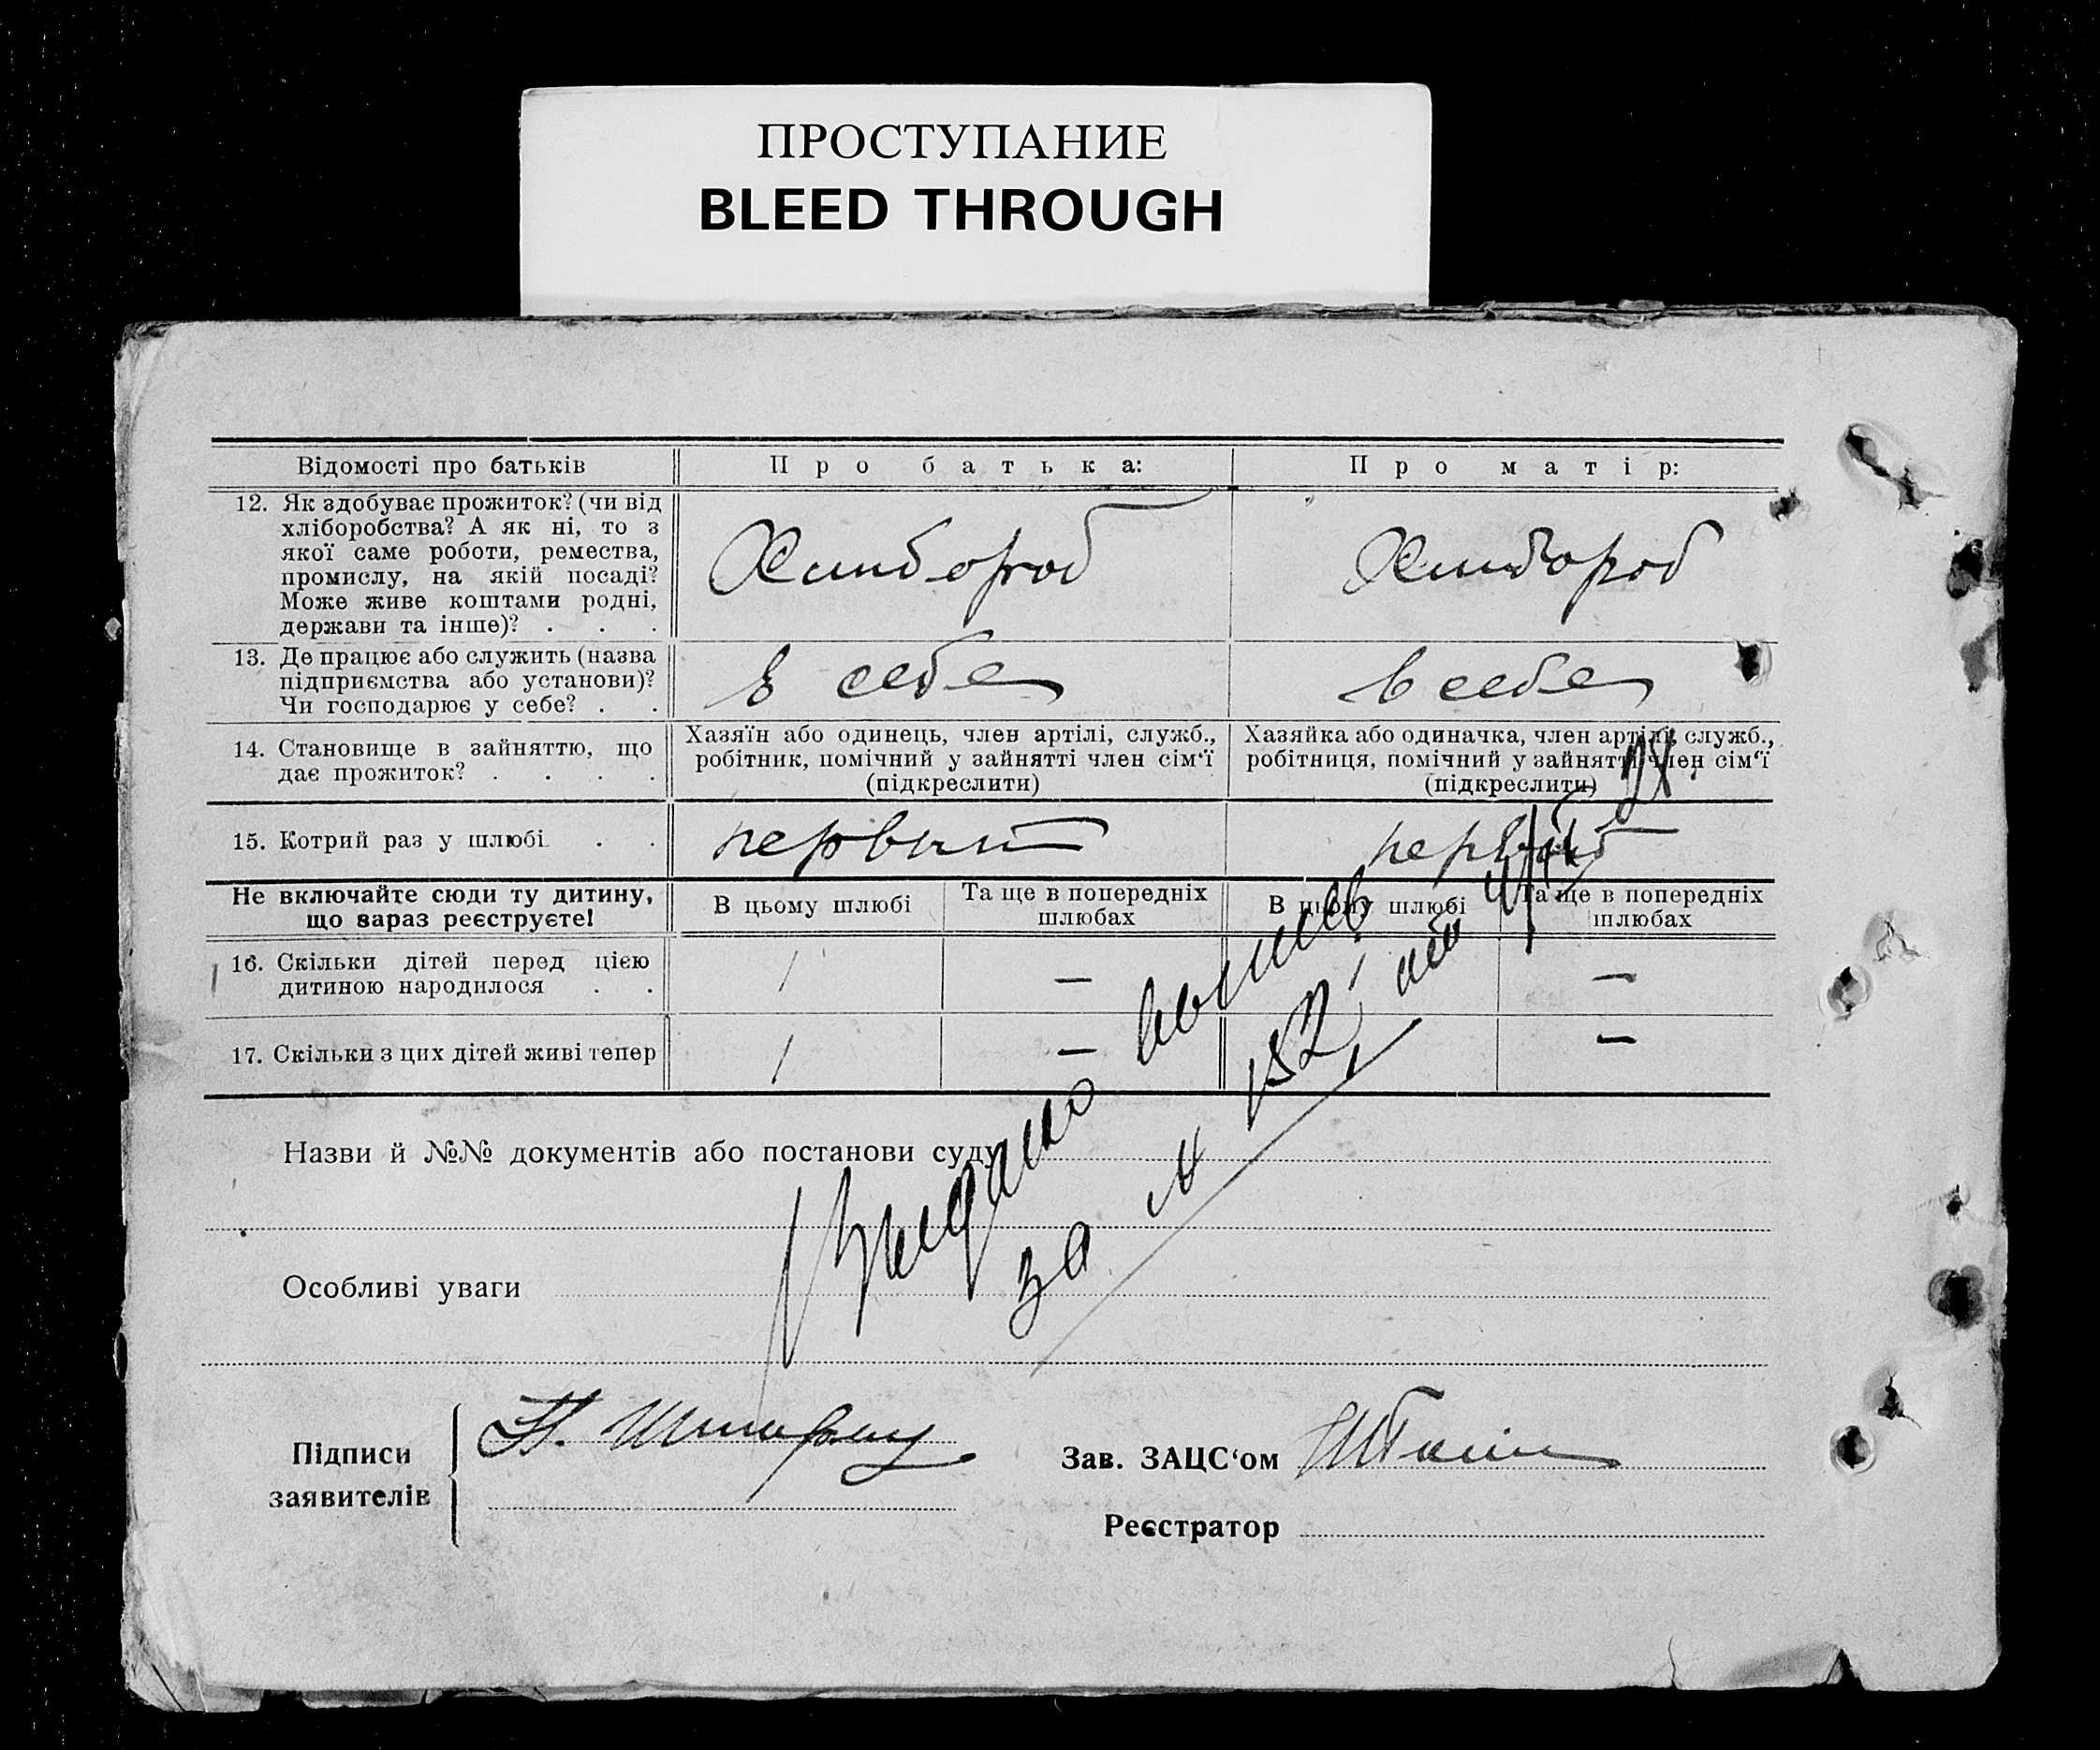 ПРОСТУПАНИЕ
BLEED THROUGH
Відомості про батьків
Про батька:
Про матір:
12. Як здобуває прожиток? (чи від
хліборобства? А як ні, то з
якої саме роботи, ремества,
промислу, на якій посаді?
Може живе коштами родні,
держави та інше)? . . .
Хлибороб
Хлибороб
13. Де працює або служить (назва
підприємства або установи)?
Чи господарює у себе? . .
в себе
в себе
14. Становище в зайняттю, що
дає прожиток? . . . .
Хазяїн або одинець, член артілі, служб.,
робітник, помічний у зайнятті член сім‘ї
(підкреслити)
Хазяйка або одиначка, член артілі, служб.,
робітниця, помічний у зайнятті член сім‘ї
(підкреслити)
15. Котрий раз у шлюбі . .
первый
первый
Не включайте сюди ту дитину,
що зараз реєструєте!
В цьому шлюбі
Та ще в попередніх
шлюбах
В цьому шлюбі
Та ще в попередніх
шлюбах
16. Скільки дітей перед цією
дитиною народилося . .
1 — 1 —
17. Скільки з цих дітей живі тепер
1 — 1 —
Назви й №№ документів або постанови суду
Видано
за № 152
28
Особливі уваги
Підписи
заявителів
Зав. ЗАЦС‘ом
Реєстратор